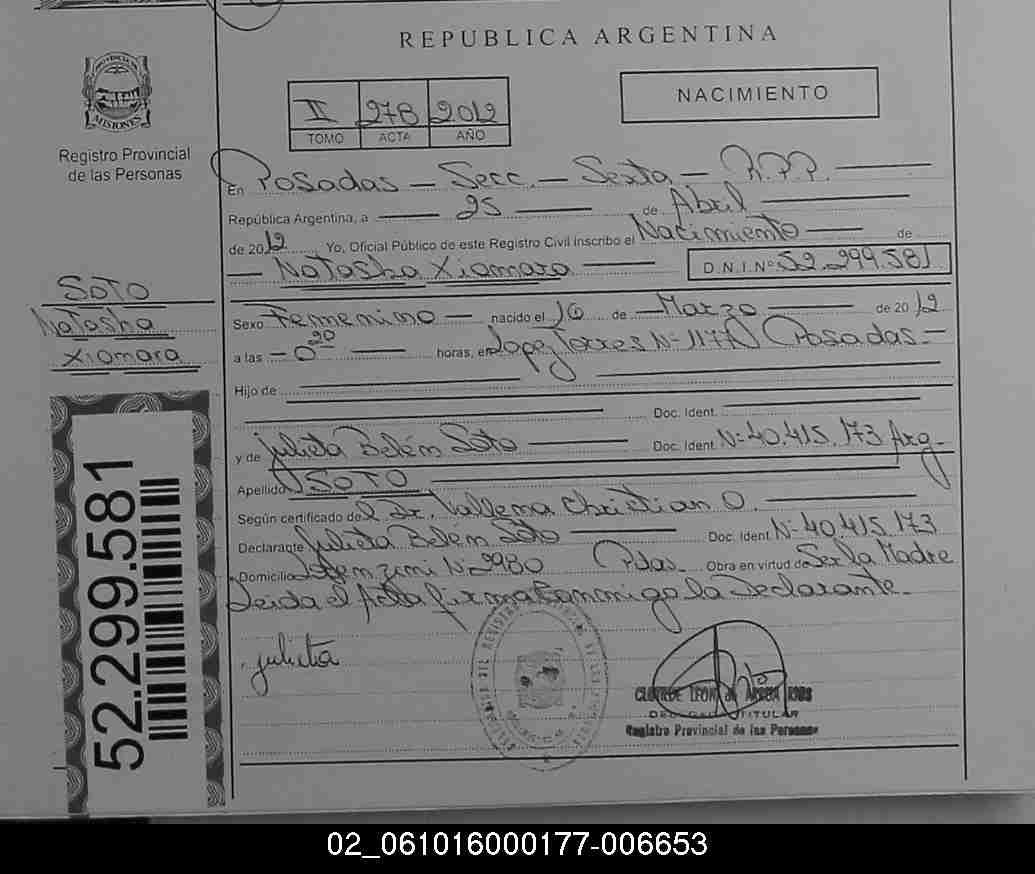 REPUBLICA ARGENTINA
PROVINCIA DE
MISIONES
Registro Provincial
de las Personas
II 278 2012
TOMO ACTA AÑO
NACIMIENTO
En Posadas - Secc. - Sexta - R.P.P.
República Argentina, a 25 de Abril
de 2012 Yo, Oficial Público de este Registro Civil inscribo el Nacimiento de
Natasha Xiomara D.N.I. Nº 52.299.581
SOTO
Natasha
Xiomara
Sexo Femenino - nacido el 16 de - Marzo de 2012
a las - 0 20 horas, en Lopez Torres Nº 1177 (Posadas -
Hijo de
Doc. Ident.
y de Julieta Belém Soto Doc. Ident. Nº 40.415.173 Arg.
Apellido SOTO
Según certificado del Dr. Vallema Christian O.
Declarante Julieta Belém Soto Doc. Ident. Nº 40.415.173
Domicilio Nº 2980 Pdas. Obra en virtud de Ser la Madre
Leida el Acta firma Conmigo la Declarante.
julieta
TITULAR
Registro Provincial de las Personas
52.299.581
02_061016000177-006653